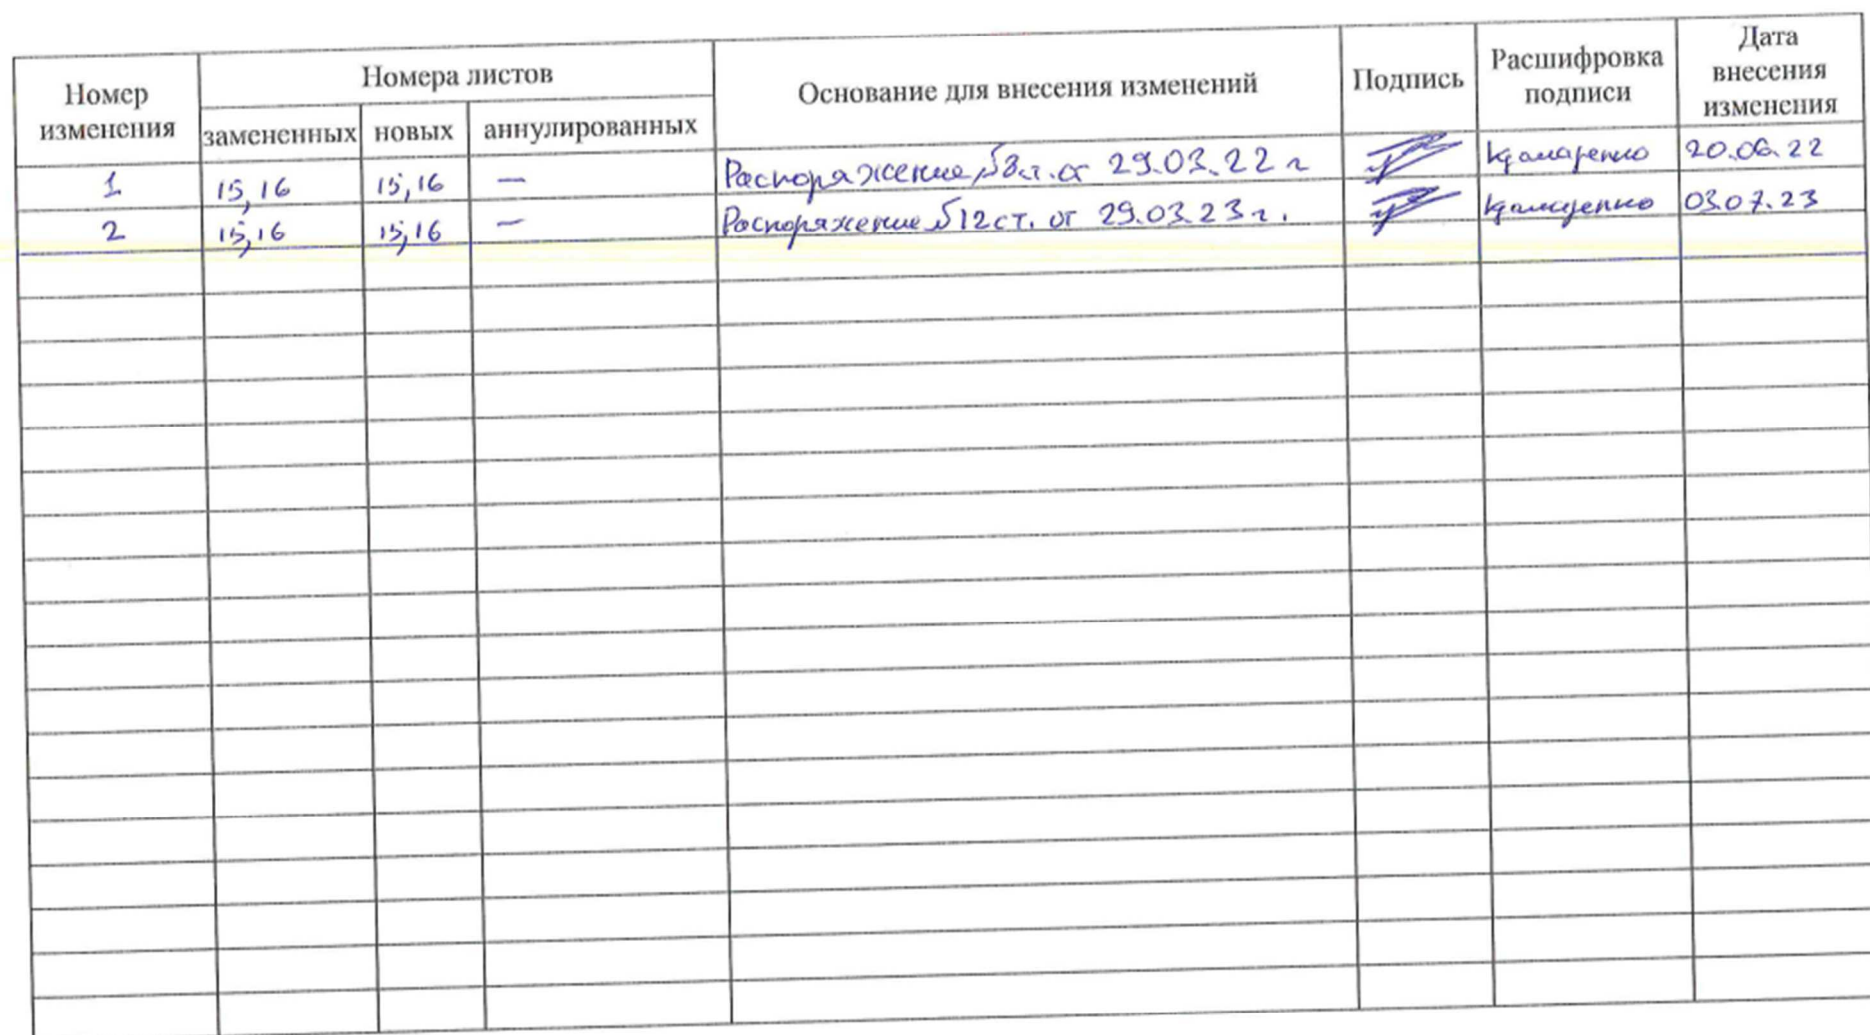 Номер изменения
Номера листов
замененных
новых
аннулированных
Основание для внесения изменений
Подпись
Расшифровка подписи
Дата внесения изменения
1 15,16 15,16 — Распоряжение от 29.03.22 г 20.06.22
2 15,16 15,16 — Распоряжение №12 ст. от 29.03.23 г. 03.07.23